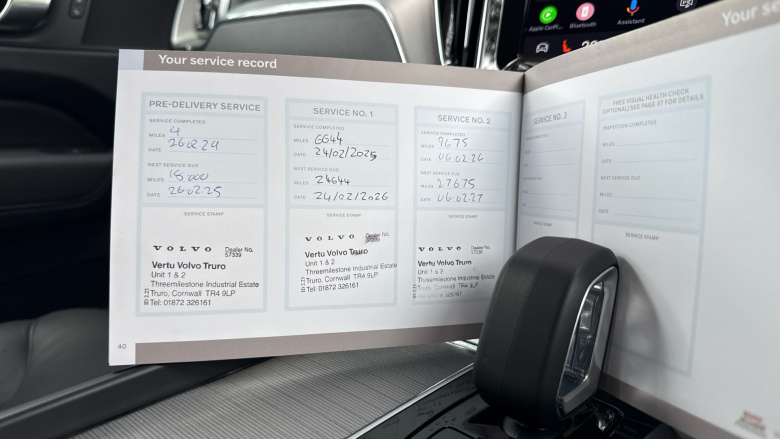 Your service record
PRE-DELIVERY SERVICE
SERVICE COMPLETED
MILES 4
DATE 26.02.24
NEXT SERVICE DUE
MILES 18000
DATE 26.02.25
SERVICE STAMP
VOLVO Dealer No.
57339
Vertu Volvo Truro
Unit 1 & 2
Threemilestone Industrial Estate
Truro, Cornwall TR4 9LP
Tel: 01872 326161
40
SERVICE NO. 1
SERVICE COMPLETED
MILES 6644
DATE 24/02/2025
NEXT SERVICE DUE
MILES 24644
DATE 24/02/2026
SERVICE STAMP
VOLVO Dealer No.
Vertu Volvo Truro
Unit 1 & 2
Threemilestone Industrial Estate
Truro, Cornwall TR4 9LP
Tel: 01872 326161
SERVICE NO. 2
SERVICE COMPLETED
MILES 9675
DATE 06.02.26
NEXT SERVICE DUE
MILES 27675
DATE 06.02.27
SERVICE STAMP
VOLVO Dealer No.
57339
Vertu Volvo Truro
Unit 1 & 2
Threemilestone Industrial Estate
Truro, Cornwall TR4 9LP
Tel: 01872 326161
SERVICE NO. 3
SERVICE COMPLETED
MILES
DATE
NEXT SERVICE DUE
MILES
DATE
SERVICE STAMP
Your se
FREE VISUAL HEALTH CHECK
(OPTIONAL) SEE PAGE 37 FOR DETAILS
INSPECTION COMPLETED
MILES
DATE
NEXT SERVICE DUE
MILES
DATE
SERVICE STAMP
Apple CarPl...
Bluetooth
Assistant